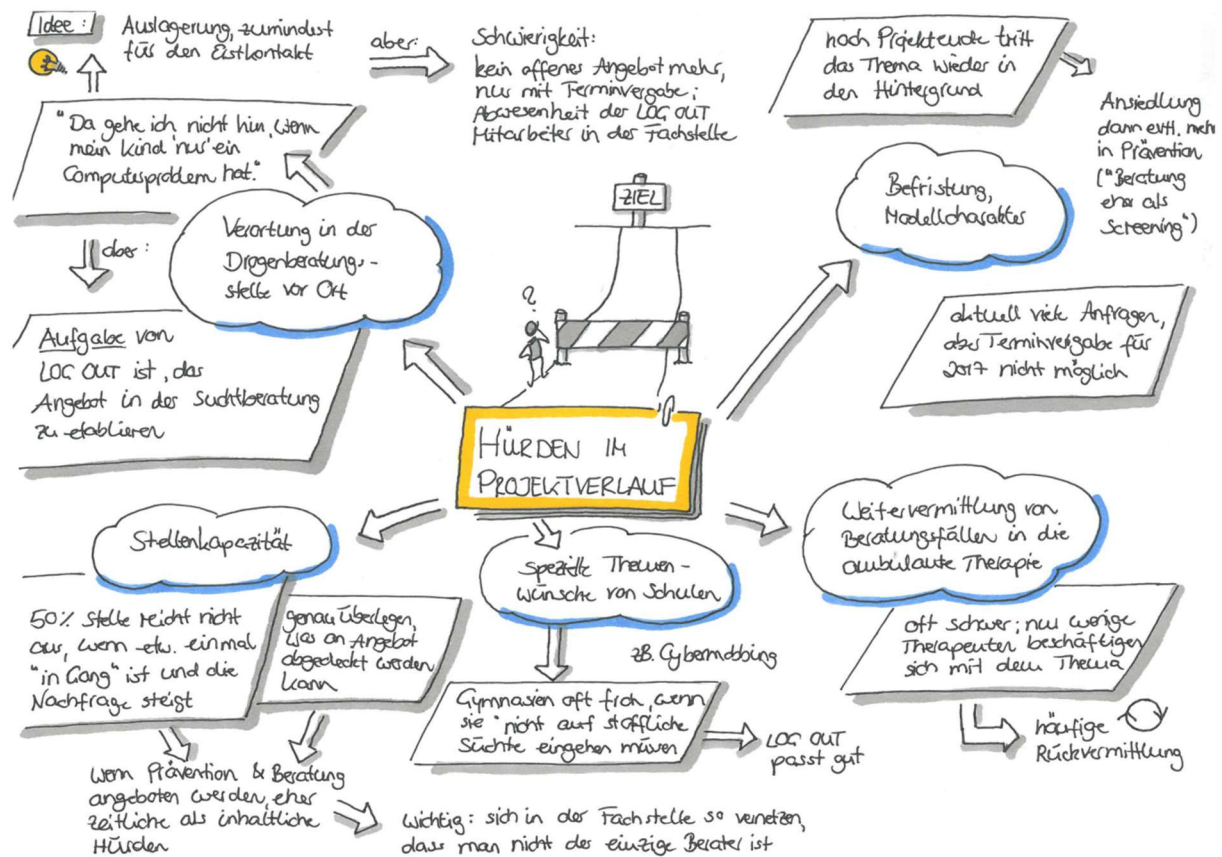 Idee:
Auslagerung, zumindest
für den Erstkontakt
aber:
Schwierigkeit:
kein offenes Angebot mehr,
nur mit Terminvergabe;
Abwesenheit der LOG OUT
Mitarbeiter in der Fachstelle
"Da gehe ich nicht hin, wenn
mein Kind 'nur' ein
Computerproblem hat."
Verortung in der
Drogenberatungs-
stelle vor Ort
aber:
Aufgabe von
LOG OUT ist, das
Angebot in der Suchtberatung
zu etablieren
ZIEL
?
HÜRDEN IM
PROJEKTVERLAUF
nach Projektende tritt
das Thema wieder in
den Hintergrund
Ansiedlung
dann evtl. mehr
in Prävention
("Beratung
eher als
Screening")
Befristung,
Modellcharakter
aktuell viele Anfragen,
aber Terminvergabe für
2017 nicht möglich
Stellenkapazität
50% Stelle reicht nicht
aus, wenn etw. einmal
"in Gang" ist und die
Nachfrage steigt
genau überlegen,
was an Angebot
abgedeckt werden
kann
wenn Prävention & Beratung
angeboten werden, eher
zeitliche als inhaltliche
Hürden
Wichtig: sich in der Fachstelle so vernetzen,
dass man nicht der einzige Berater ist
spezielle Themen-
wünsche von Schulen
zB. Cybermobbing
Gymnasien oft froh, wenn
sie "nicht auf stoffliche
Süchte eingehen müssen
LOG OUT
passt gut
Weitervermittlung von
Beratungsfällen in die
ambulante Therapie
oft schwer; nur wenige
Therapeuten beschäftigen
sich mit dem Thema
häufige
Rückvermittlung